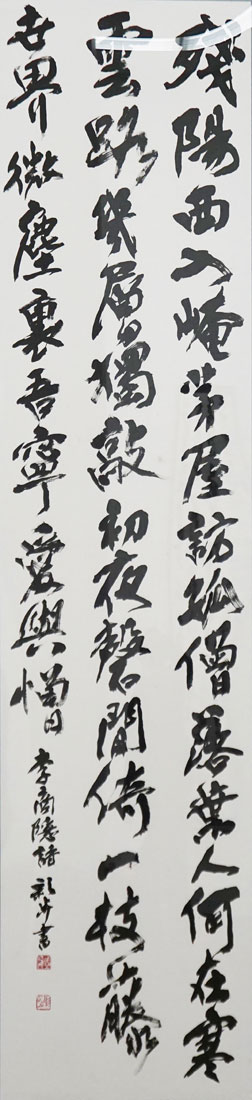 殘陽西入崦茅屋訪孤僧落葉人何在寒
雲路幾層獨敲初夜磬閒倚一枝藤
世界微塵裏吾寧愛與憎
李商隱詩
書